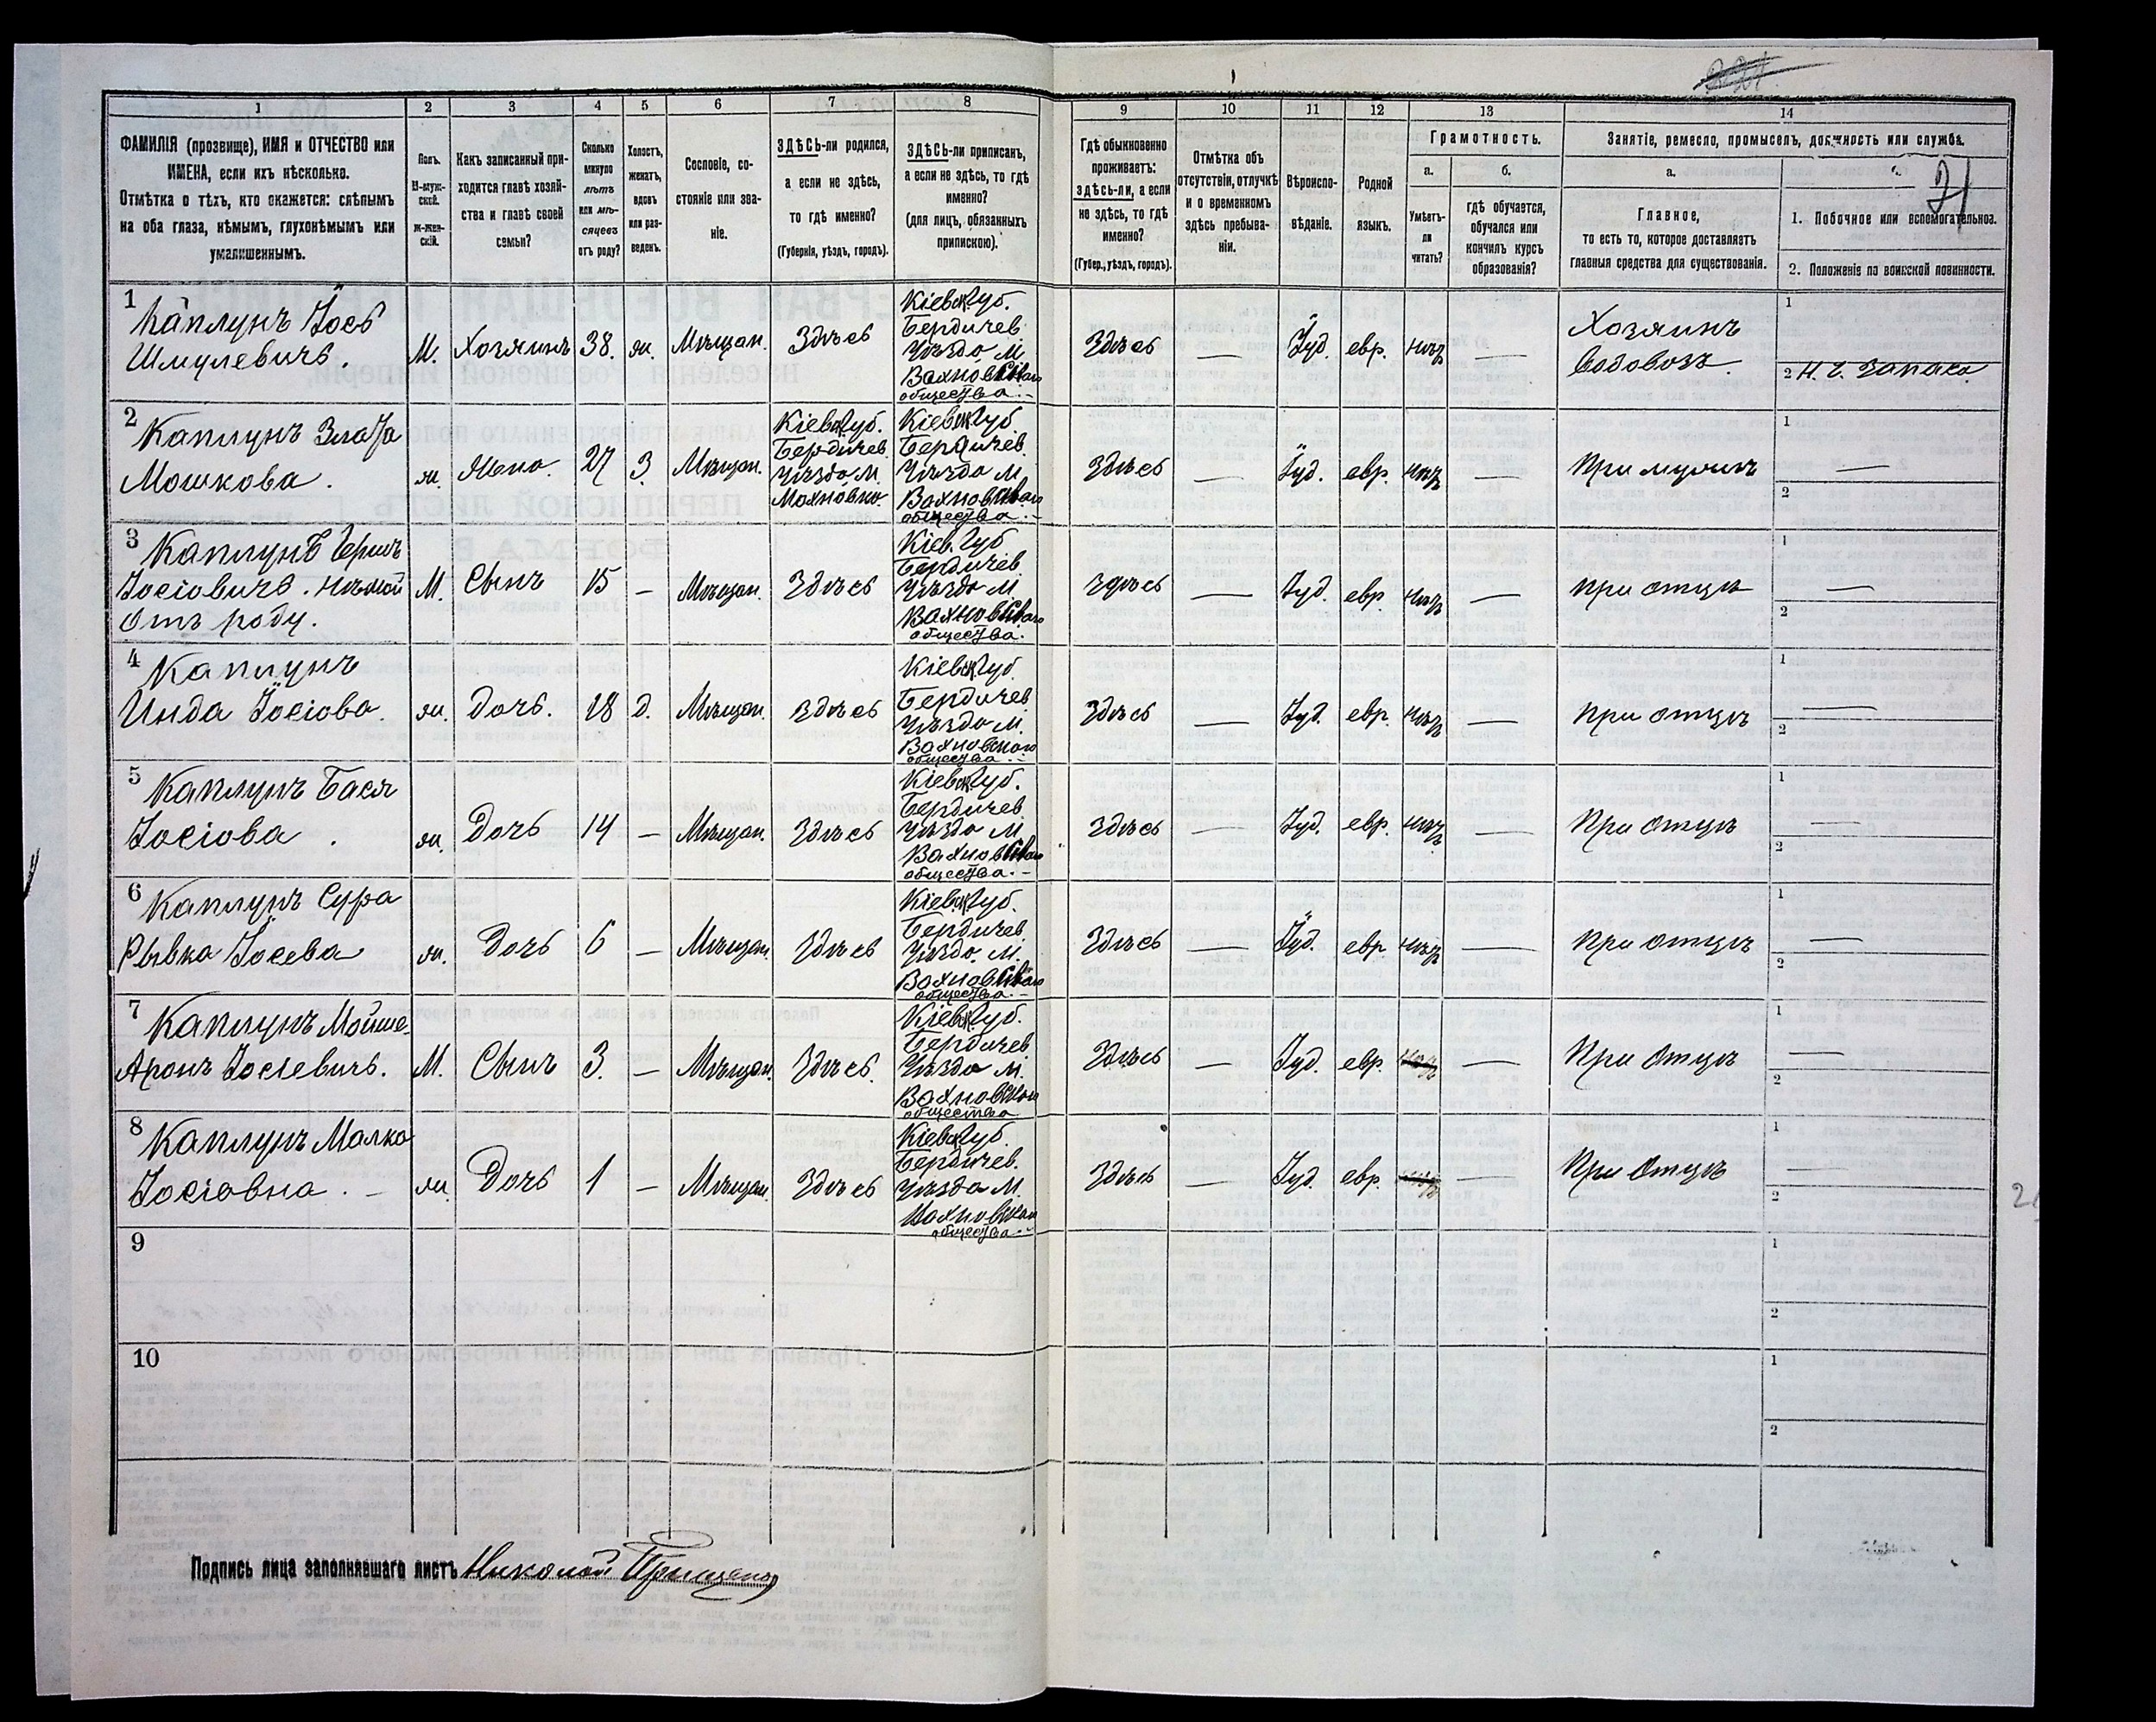 1 2 3 4 5 6 7 8 9 10 11 12 13 14
ФАМИЛІЯ (прозвище), ИМЯ и ОТЧЕСТВО или
ИМЕНА, если ихъ нѣсколько.
Отмѣтка о тѣхъ, кто окажется: слѣпымъ
на оба глаза, нѣмымъ, глухонѣмымъ или
умалишеннымъ.
Полъ.
М-муж-
ской.
ж-жен-
скій.
Какъ записанный при-
ходится главѣ хозяй-
ства и главѣ своей
семьи?
Сколько
минуло
лѣтъ
или мѣ-
сяцевъ
отъ роду?
Холостъ,
женатъ,
вдовъ
или раз-
веденъ.
Сословіе, со-
стояніе или зва-
ніе.
ЗДѢСЬ-ли родился,
а если не здѣсь,
то гдѣ именно?
(Губернія, уѣздъ, городъ).
ЗДѢСЬ-ли приписанъ,
а если не здѣсь, то гдѣ
именно?
(для лицъ, обязанныхъ
припискою).
Гдѣ обыкновенно
проживаетъ:
здѣсь-ли, а если
не здѣсь, то гдѣ
именно?
(Губер., уѣздъ, городъ).
Отмѣтка объ
отсутствіи, отлучкѣ
и о временномъ
здѣсь пребыва-
ніи.
Вѣроиспо-
вѣданіе.
Родной
языкъ.
Грамотность.
а.
Умѣетъ-
ли
читать?
б.
гдѣ обучается,
обучался или
кончилъ курсъ
образованія?
Занятіе, ремесло, промыселъ, должность или служба.
а.
Главное,
то есть то, которое доставляетъ
главныя средства для существованія.
21
1. Побочное или вспомогательное.
2. Положеніе по воинской повинности.
1
Каплунъ Іось
Шмулевичъ.
М. Хозяинъ 38. ж. Мѣщан. Здѣсь
Кіевск. губ.
Бердичев.
Уѣзда М.
Вахновскаго
общества.
Здѣсь — Іуд. евр. нѣтъ —
Хозяинъ
Водовозъ.
1
2 Н. Ч. Запаса
2
Каплунъ Злата
Мошкова.
ж. Жена. 27 З. Мѣщан.
Кіевск. губ.
Бердичев.
Уѣзда М.
Махновка
Кіевск. губ.
Бердичев.
Уѣзда М.
Вахновскаго
общества.
Здѣсь — Іуд. евр. нѣтъ — При мужѣ
1
—
2
3
Каплунъ Гершъ
Іосіовичъ. нѣмой
отъ роду.
М. Сынъ 15 — Мѣщан. Здѣсь
Кіев. губ
Бердичев
Уѣзда М
Вахновскаго
общества.
здѣсь — Іуд. евр. нѣтъ — при отцѣ
1
—
2
4
Каплунъ
Инда Іосіова.
ж. Дочь. 18 д. Мѣщан. здѣсь
Кіевск. губ.
Бердичев.
Уѣзда М.
Вахновскаго
общества.
Здѣсь — Іуд. евр. нѣтъ — При отцѣ
1
—
2
5
Каплунъ Бася
Іосіова.
ж. Дочь 14 — Мѣщан. Здѣсь
Кіевск. губ.
Бердичев
Уѣзда М.
Вахновскаго
общества.
Здѣсь — Іуд. евр. нѣтъ — При отцѣ
1
—
2
6
Каплунъ Сура
Рывка Іосева
ж. Дочь 6 — Мѣщан. Здѣсь
Кіевск. губ.
Бердичев
Уѣзда. М.
Вахновскаго
общества.
Здѣсь — Іуд. евр нѣтъ — При отцѣ
1
—
2
7
Каплунъ Мойше-
Аронъ Іосіевичъ.
М. Сынъ 3. — Мѣщан. Здѣсь.
Кіевск. губ.
Бердичев
Уѣзда М.
Вахновскаго
общества
Здѣсь — Іуд. евр. — При Отцѣ
1
—
2
8
Каплунъ Малка
Іосіовна. —
ж. Дочь 1 — Мѣщан. Здѣсь
Кіевск. губ.
Бердичев.
Уѣзда М.
Вахновскаго
общества.
Здѣсь — Іуд. евр. — При Отцѣ
1
—
2
9
1
2
10
1
2
Подпись лица заполнявшаго листъ Николай